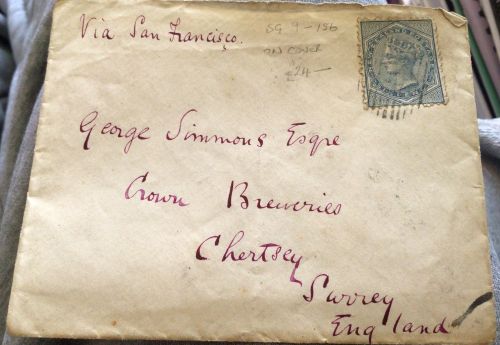 Via San Francisco.
SG 9 - 186
ON COVER
£24-
George Simmons Esqre
Crown Breweries
Chertsey
Surrey
England